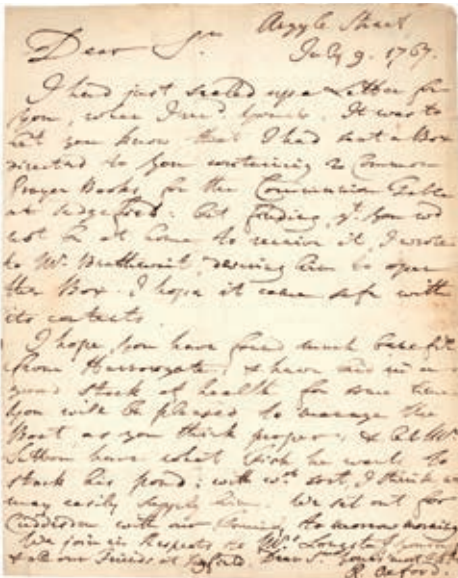 Argyle Street
July 9. 1767.
Dear Sr.
I had just sealed up a Letter for
you, when I recd. yours. It was to
let you know that I had sent a Box
directed to you containing 2 Common
Prayer Books for the Communion Table
at Sedgeford: but finding, yt. you wd
not be at home to receive it, I wrote
to Mr. Brathwait, desiring him to open
the Box. I hope it came safe with
its contents.
I hope you have found much benefit
from Harrowgate, & have laid in a
good stock of health for some time
You will be pleased to manage the
Boat, as you think proper, & let Mr.
Sitton have what fish he wants to
stock his pond: with wch. sort, I think we
may easily supply him. We set out for
Cuddesdon with our family to morrow morning
We join in Respects to Mrs. Longstaff yourself
& all our Friends at Dear Sr. yours most
R. Oxford.